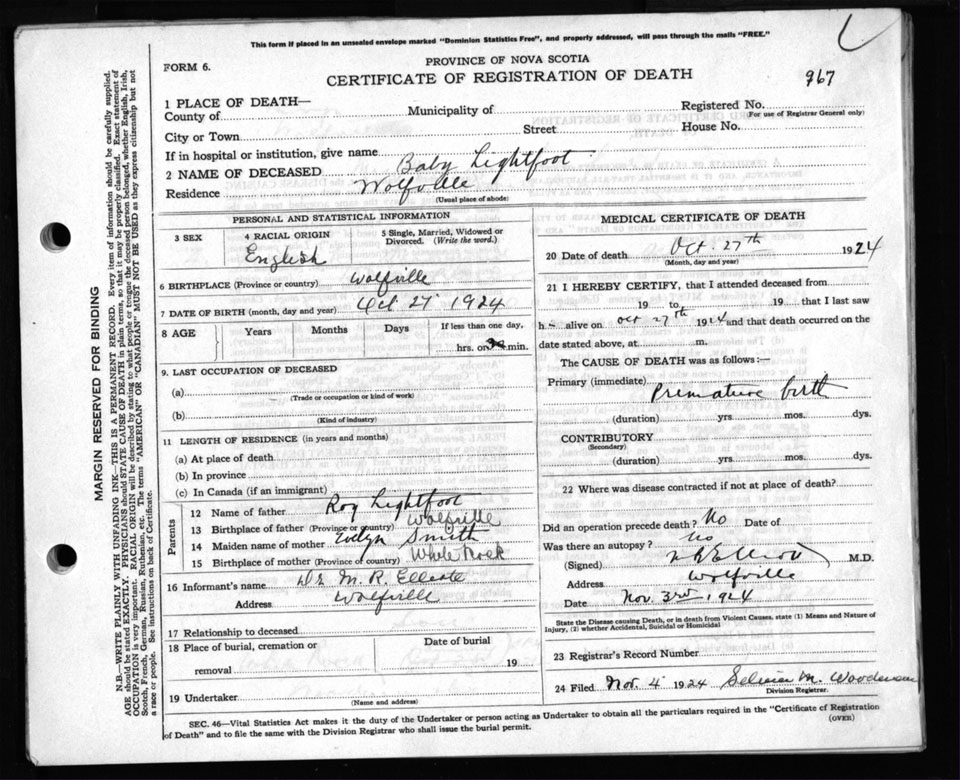 This form if placed in an unsealed envelope marked "Dominion Statistics Free", and properly addressed, will pass through the mails "FREE."
FORM 6.
PROVINCE OF NOVA SCOTIA
CERTIFICATE OF REGISTRATION OF DEATH
967
1 PLACE OF DEATH—
County of
Municipality of
Registered No.
(For use of Registrar General only)
City or Town
Street
House No.
If in hospital or institution, give name
2 NAME OF DECEASED Baby Lightfoot
Residence Wolfville
(Usual place of abode)
PERSONAL AND STATISTICAL INFORMATION
3 SEX
4 RACIAL ORIGIN
English
5 Single, Married, Widowed or Divorced. (Write the word.)
6 BIRTHPLACE (Province or country) Wolfville
7 DATE OF BIRTH (month, day and year) Oct 27 1924
8 AGE Years Months Days If less than one day,
hrs. or min.
9. LAST OCCUPATION OF DECEASED
(a)
(Trade or occupation or kind of work)
(b)
(Kind of industry)
11 LENGTH OF RESIDENCE (in years and months)
(a) At place of death
(b) In province
(c) In Canada (if an immigrant)
Parents
12 Name of father Roy Lightfoot
13 Birthplace of father (Province or country) Wolfville
14 Maiden name of mother Evelyn Smith
15 Birthplace of mother (Province or country) White Rock
16 Informant's name Dr M. R. Elliott
Address Wolfville
17 Relationship to deceased
18 Place of burial, cremation or removal
Date of burial
19
19 Undertaker
(Name and address)
MEDICAL CERTIFICATE OF DEATH
20 Date of death Oct. 27th 1924
(Month, day and year)
21 I HEREBY CERTIFY, that I attended deceased from
19 to 19 that I last saw
h alive on Oct 27th 1924 and that death occurred on the
date stated above, at m.
The CAUSE OF DEATH was as follows:—
Primary (immediate) Premature birth
(duration) yrs. mos. dys.
CONTRIBUTORY
(Secondary)
(duration) yrs. mos. dys.
22 Where was disease contracted if not at place of death?
Did an operation precede death? No Date of
Was there an autopsy? No
(Signed) M R Elliott M.D.
Address Wolfville
Date Nov. 3rd 1924
State the Disease causing Death, or in death from Violent Causes, state (1) Means and Nature of
Injury, (2) whether Accidental, Suicidal or Homicidal
23 Registrar's Record Number
24 Filed Nov. 4 1924 M.
Division Registrar.
SEC. 46—Vital Statistics Act makes it the duty of the Undertaker or person acting as Undertaker to obtain all the particulars required in the "Certificate of Registration
of Death" and to file the same with the Division Registrar who shall issue the burial permit.
(OVER)
MARGIN RESERVED FOR BINDING
N.B.—WRITE PLAINLY WITH UNFADING INK—THIS IS A PERMANENT RECORD. Every item of information should be carefully supplied.
AGE should be stated EXACTLY. PHYSICIANS should STATE CAUSE OF DEATH in plain terms, so that it may be properly classified. Exact statement of
OCCUPATION is very important. RACIAL ORIGIN will be described by stating to what people or tongue the deceased person belonged, whether English, Irish,
Scotch, French, German, Russian, Ruthenian, etc. The terms "AMERICAN" OR "CANADIAN" MUST NOT BE USED as they express citizenship but not
a race or people. See instructions on back of Certificate.